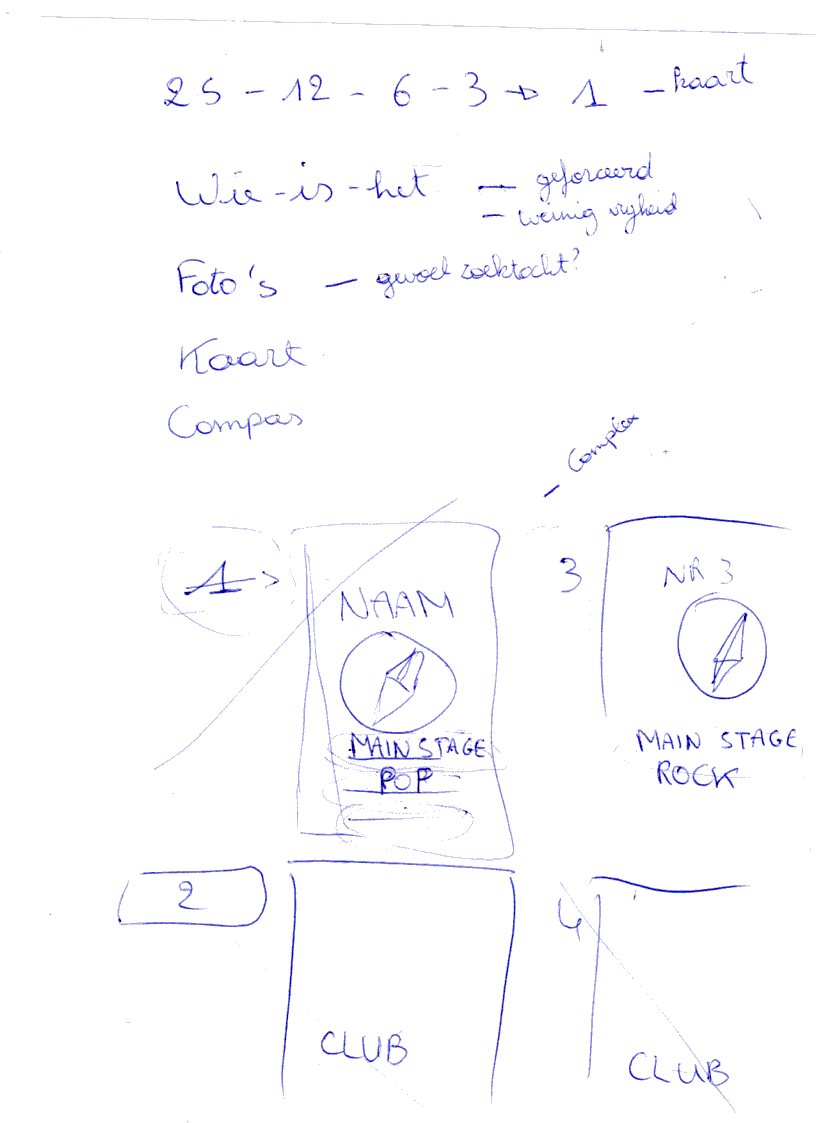 25 - 12 - 6 - 3 → 1 - kaart
Wie-is-het — geforceerd
- weinig vrijheid
Foto's — gevoel zoektocht?
Kaart
Compas
- Complex
1 >
NAAM
MAIN STAGE
POP
3
NR 3
MAIN STAGE
ROCK
2
CLUB
4
CLUB